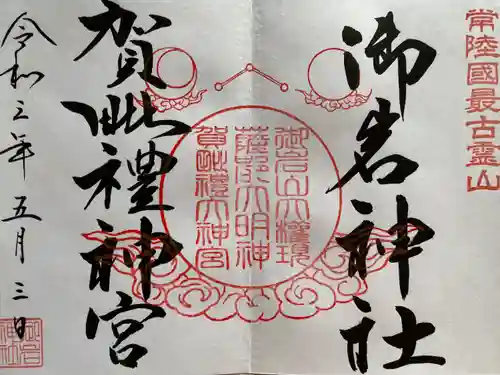 常陸國最古霊山
御岩神社
御岩山大権現
薩都大明神
賀毗禮大神宮
賀毗禮神宮
令和三年五月三日
御岩
神社